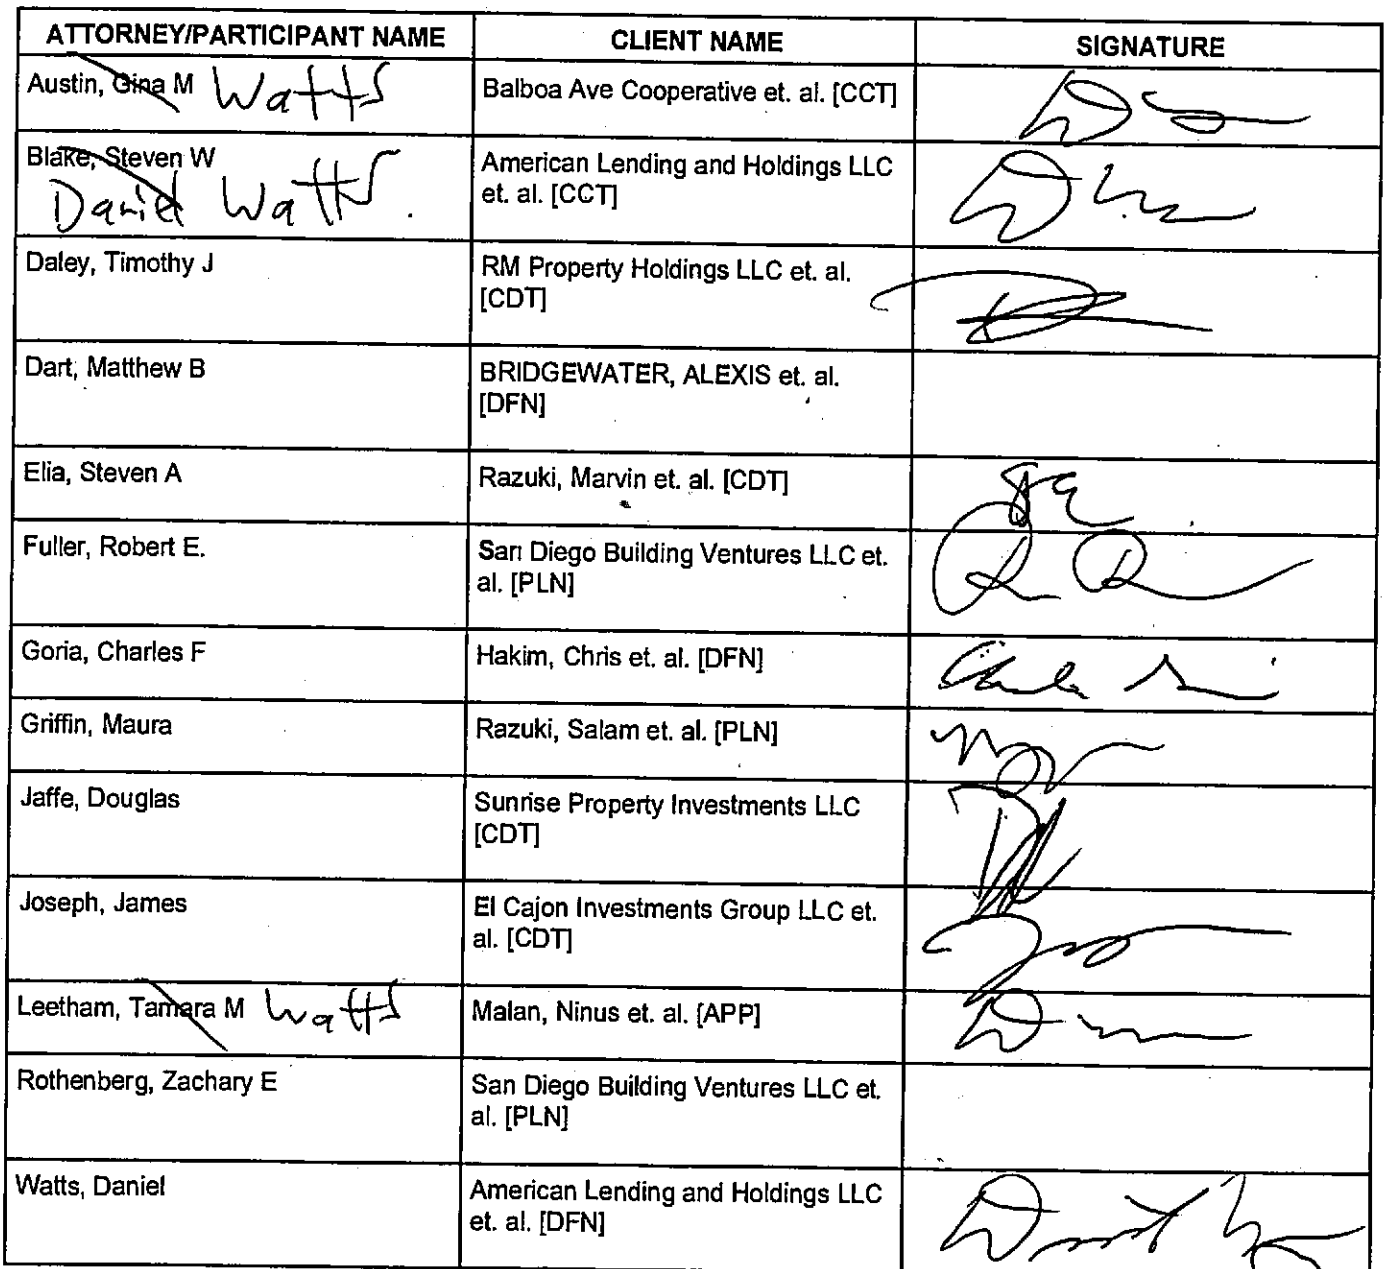 ATTORNEY/PARTICIPANT NAME CLIENT NAME SIGNATURE
Austin, Gina M Watts Balboa Ave Cooperative et. al. [CCT]
Blake, Steven W American Lending and Holdings LLC
Daniel Watts. et. al. [CCT]
Daley, Timothy J RM Property Holdings LLC et. al.
[CDT]
Dart, Matthew B BRIDGEWATER, ALEXIS et. al.
[DFN]
Elia, Steven A Razuki, Marvin et. al. [CDT]
Fuller, Robert E. San Diego Building Ventures LLC et.
al. [PLN]
Goria, Charles F Hakim, Chris et. al. [DFN]
Griffin, Maura Razuki, Salam et. al. [PLN]
Jaffe, Douglas Sunrise Property Investments LLC
[CDT]
Joseph, James El Cajon Investments Group LLC et.
al. [CDT]
Leetham, Tamara M Watts Malan, Ninus et. al. [APP]
Rothenberg, Zachary E San Diego Building Ventures LLC et.
al. [PLN]
Watts, Daniel American Lending and Holdings LLC
et. al. [DFN]